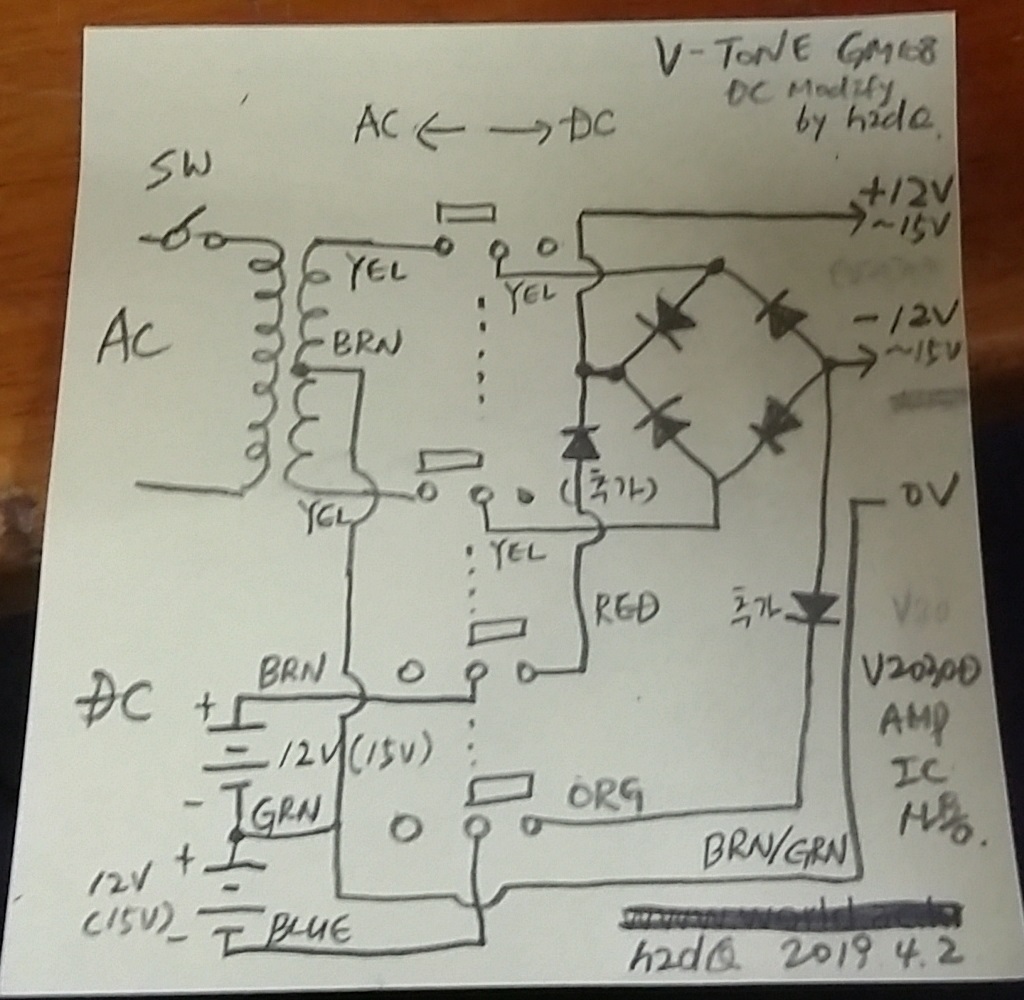 V-TONE GM108
DC Modify
by h2dQ.
AC ← → DC
SW
+12V
~15V
YEL
YEL
-12V
~15V
AC
BRN
(추가)
0V
YEL
YEL
RED
추가
BRN
V2030D
DC
+
12V (15V)
AMP
IC
- GRN
ORG
BRN/GRN
+
12V
(15V)-
BLUE
h2dQ 2019 4.2